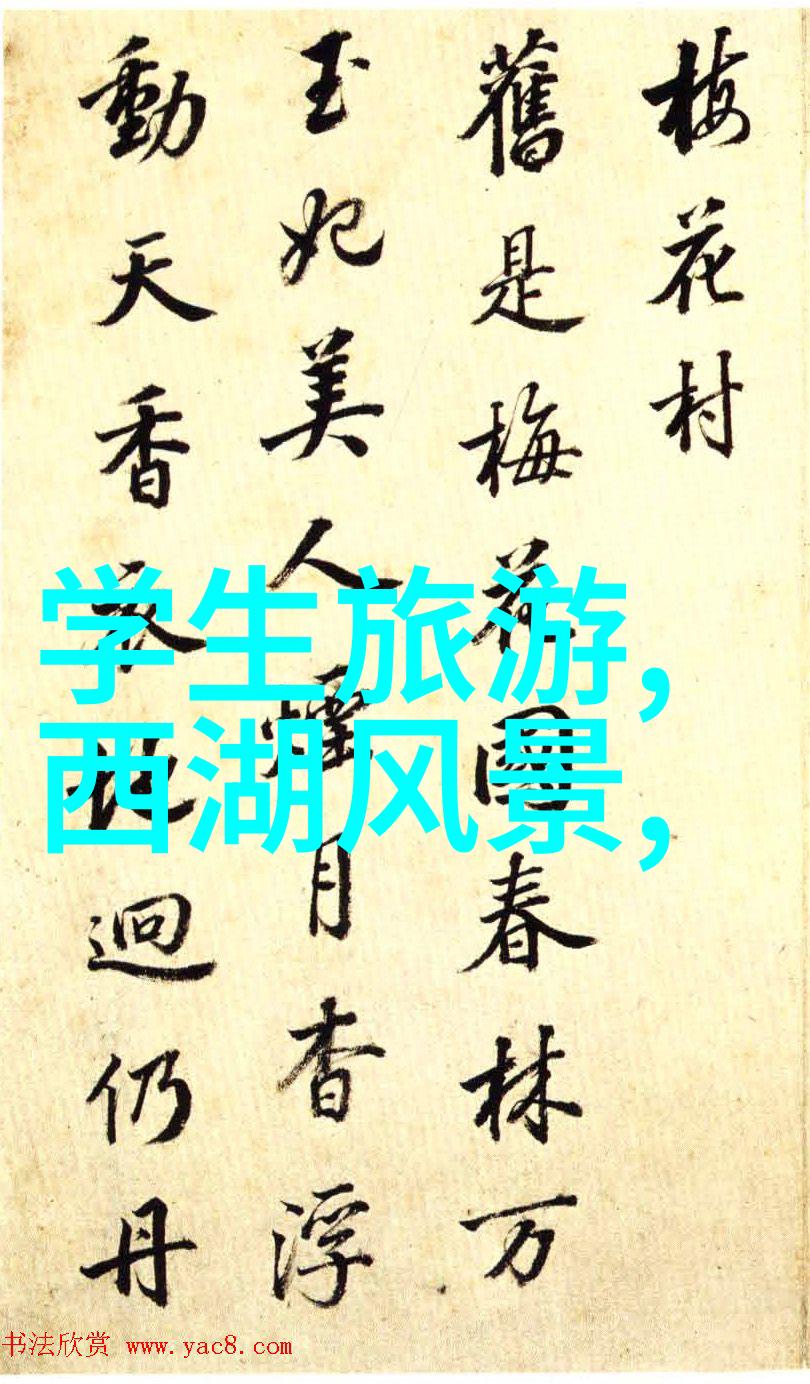 梅花村
舊是梅花國春林万
玉妃美人煙月杳浮
動天香地迥仍丹
学生旅游,
西湖风景,
书法欣赏 www.yac8.com